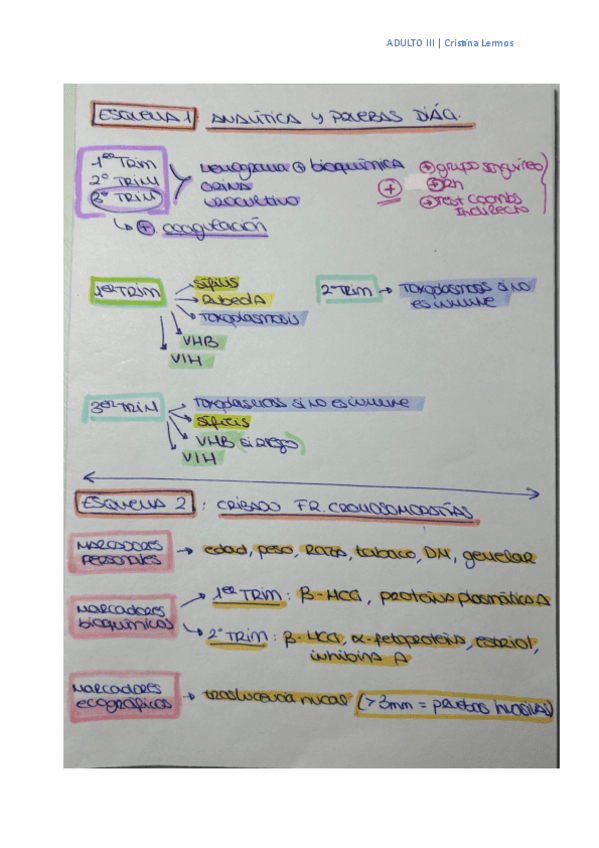 ADULTO III | Cristina Lermos
ESQUEMA 1: ANALÍTICA Y PRUEBAS DIAG.
1er TRIM
2º TRIM
3er TRIM
Hemograma + bioquímica
ORINA
UROCULTIVO
+
+ grupo sanguíneo
+ Rh
+ TEST COOMBS
Indirecto
+ coagulación
1er TRIM
SÍFILIS
RUBEOLA
TOXOPLASMOSIS
VHB
VIH
2º TRIM → TOXOPLASMOSIS SI NO
ES INMUNE
3er TRIM
TOXOPLASMOSIS SI NO ES INMUNE
SÍFILIS
VHB SI RIESGO
VIH
ESQUEMA 2: CRIBADO FR. CROMOSOMOPATÍAS
MARCADORES
PERSONALES → edad, peso, RAZA, tabaco, DM, gemelar
MARCADORES
bioquímicos
1er TRIM: β-HCG, proteína plasmática A
2º TRIM: β-HCG, α-fetoproteína, estriol,
inhibina A
MARCADORES
ecográficos → translucencia nucal (>3mm = pruebas invasivas)